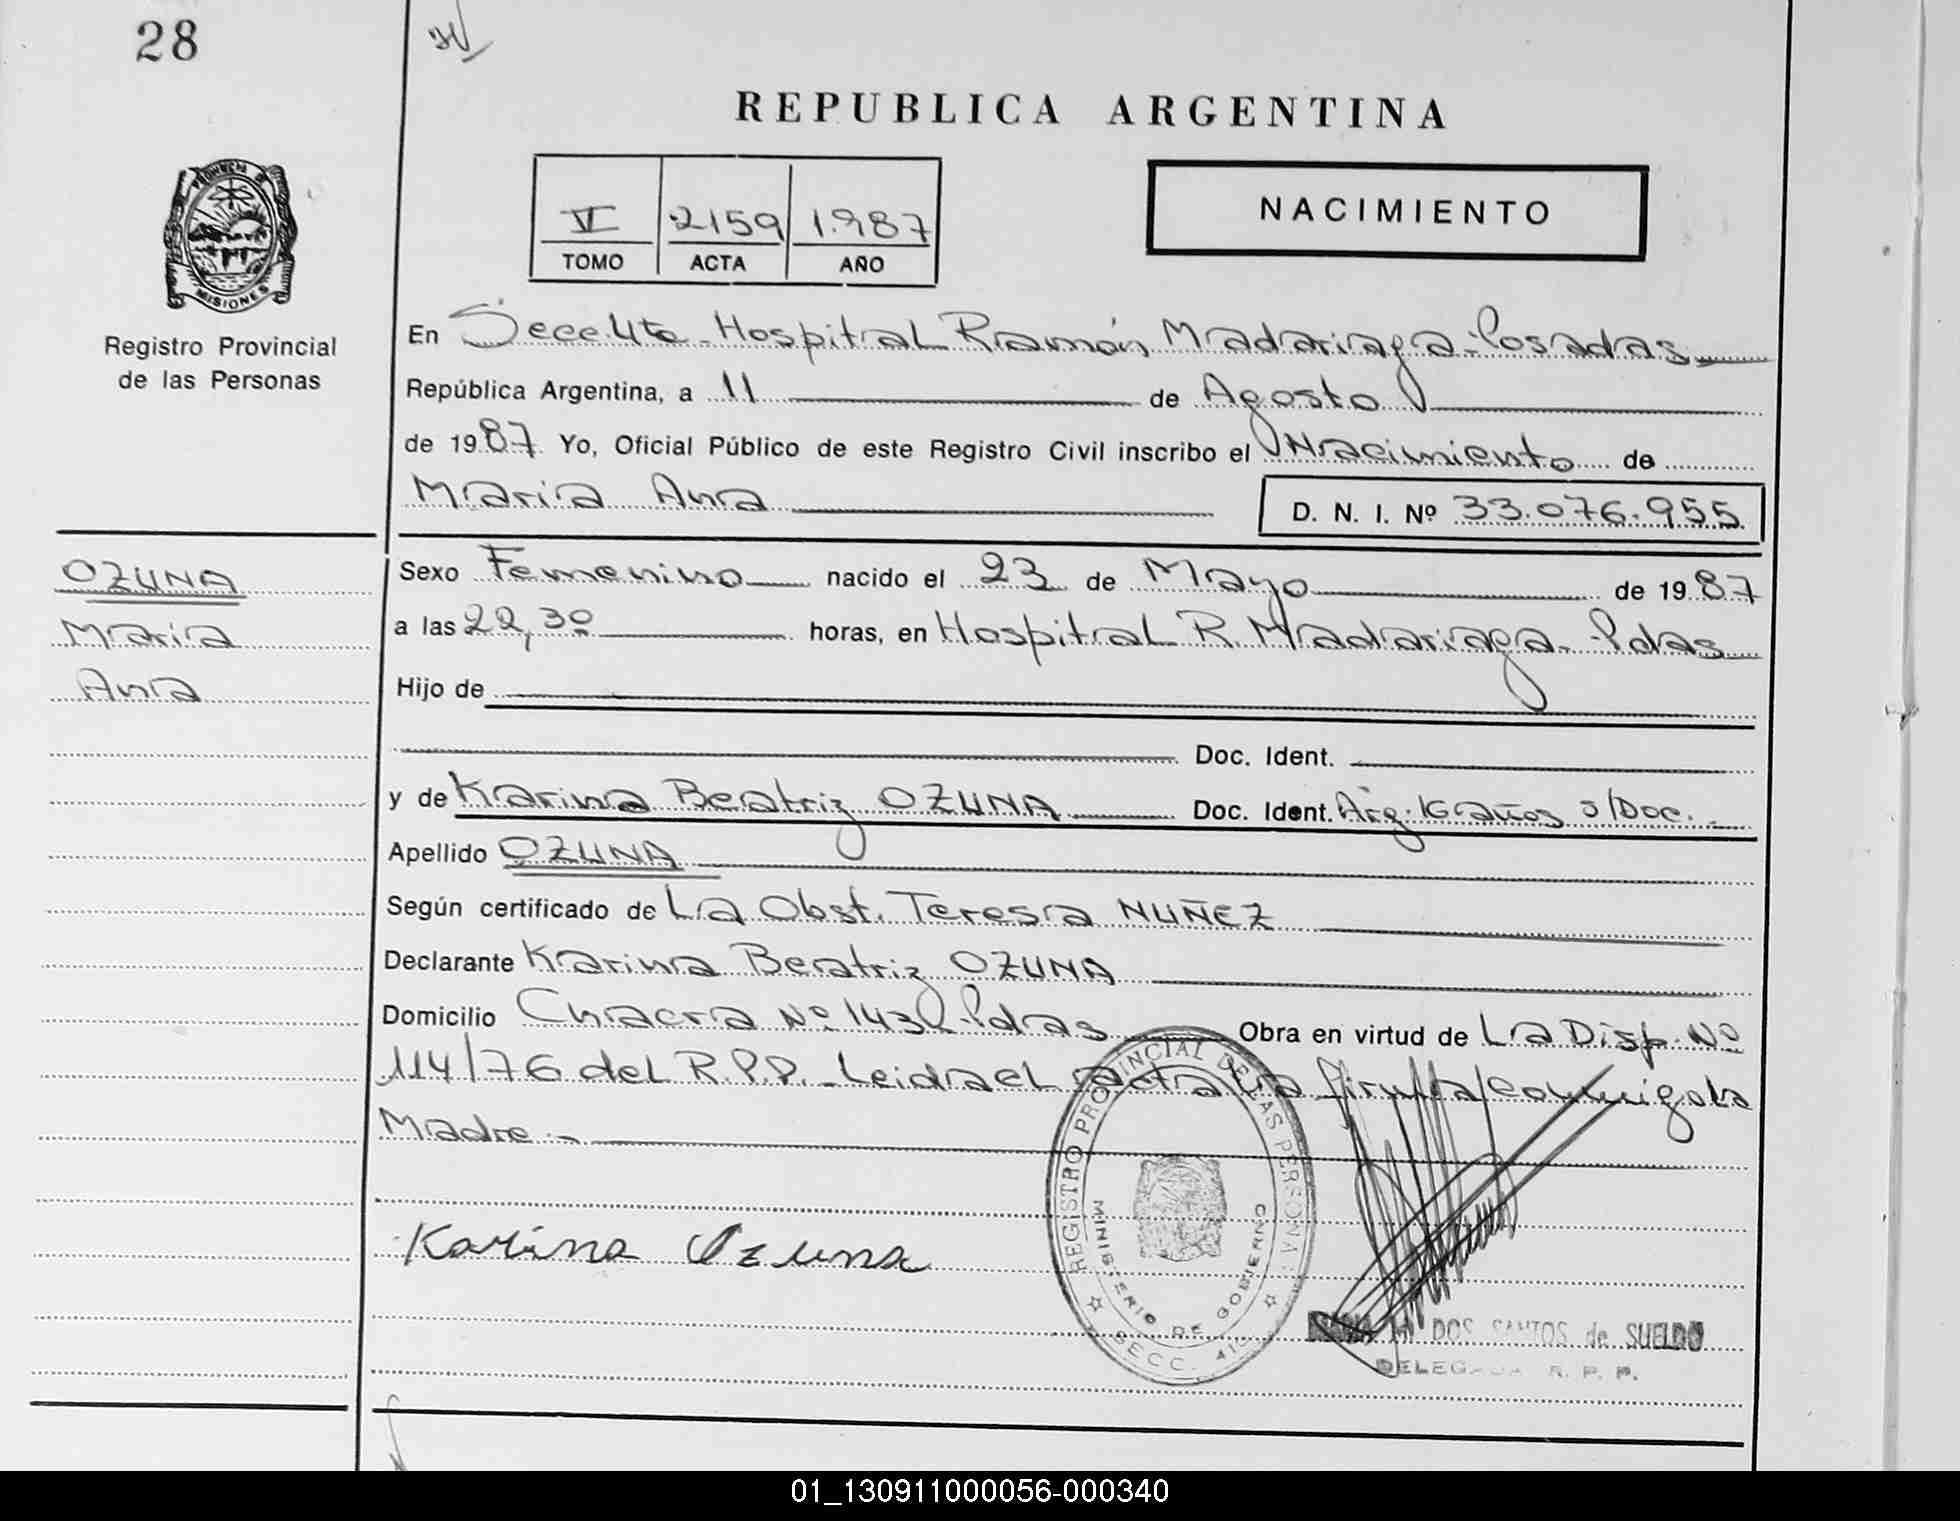 28
REPUBLICA ARGENTINA
VI 2159 1.987
TOMO ACTA AÑO
NACIMIENTO
PROVINCIA DE
MISIONES
Registro Provincial
de las Personas
En Secc. 4ta. Hospital Ramón Madariaga - Posadas
República Argentina, a 11 de Agosto
de 1987 Yo, Oficial Público de este Registro Civil inscribo el Nacimiento de
Maria Ana
D. N. I. Nº 33.076.955
OZUNA
Maria
Ana
Sexo Femenino nacido el 23 de Mayo de 1987
a las 22,30 horas, en Hospital R. Madariaga - Pdas
Hijo de
Doc. Ident.
y de Karina Beatriz OZUNA Doc. Ident. Arg. 16 años s/Doc.
Apellido OZUNA
Según certificado de La Obst. Teresa NUÑEZ
Declarante Karina Beatriz OZUNA
Domicilio Chacra Nº 143 - Pdas Obra en virtud de La Disp. Nº
114/76 del R.P.P. - Leida el acta la firma conmigo la
Madre.-
Karina Ozuna
REGISTRO PROVINCIAL DE LAS PERSONAS
MINISTERIO DE GOBIERNO
SECC.
DOS SANTOS de SUELDO
DELEGADA R. P. P.
01_130911000056-000340